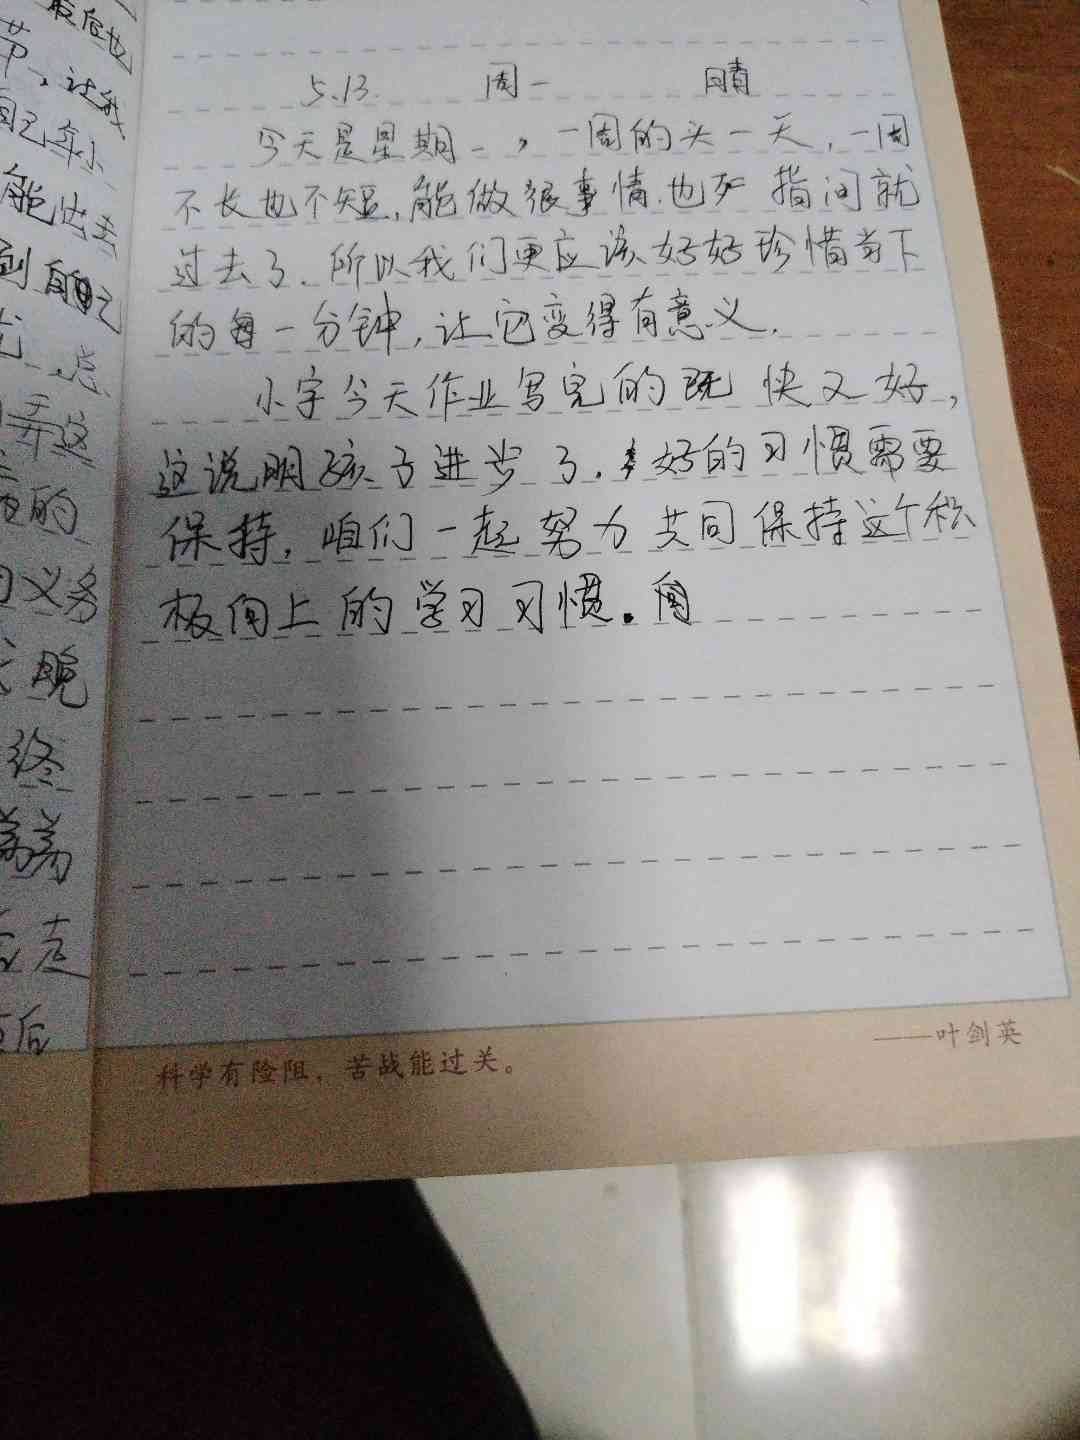 最后也
节,让我
自己年小
能出去
到自己
尤点
弄这
的
义务
晚
终
走
后
5.13. 周一 晴
今天是星期一,一周的头一天,一周
不长也不短,能做很事情.也 指间就
过去了.所以我们更应该好好珍惜当下
的每一分钟,让它变得有意义.
小宇今天作业写完的既快又好,
这说明孩子进步了.好的习惯需要
保持,咱们一起努力共同保持这个积
极向上的学习习惯.
科学有险阻,苦战能过关。
——叶剑英